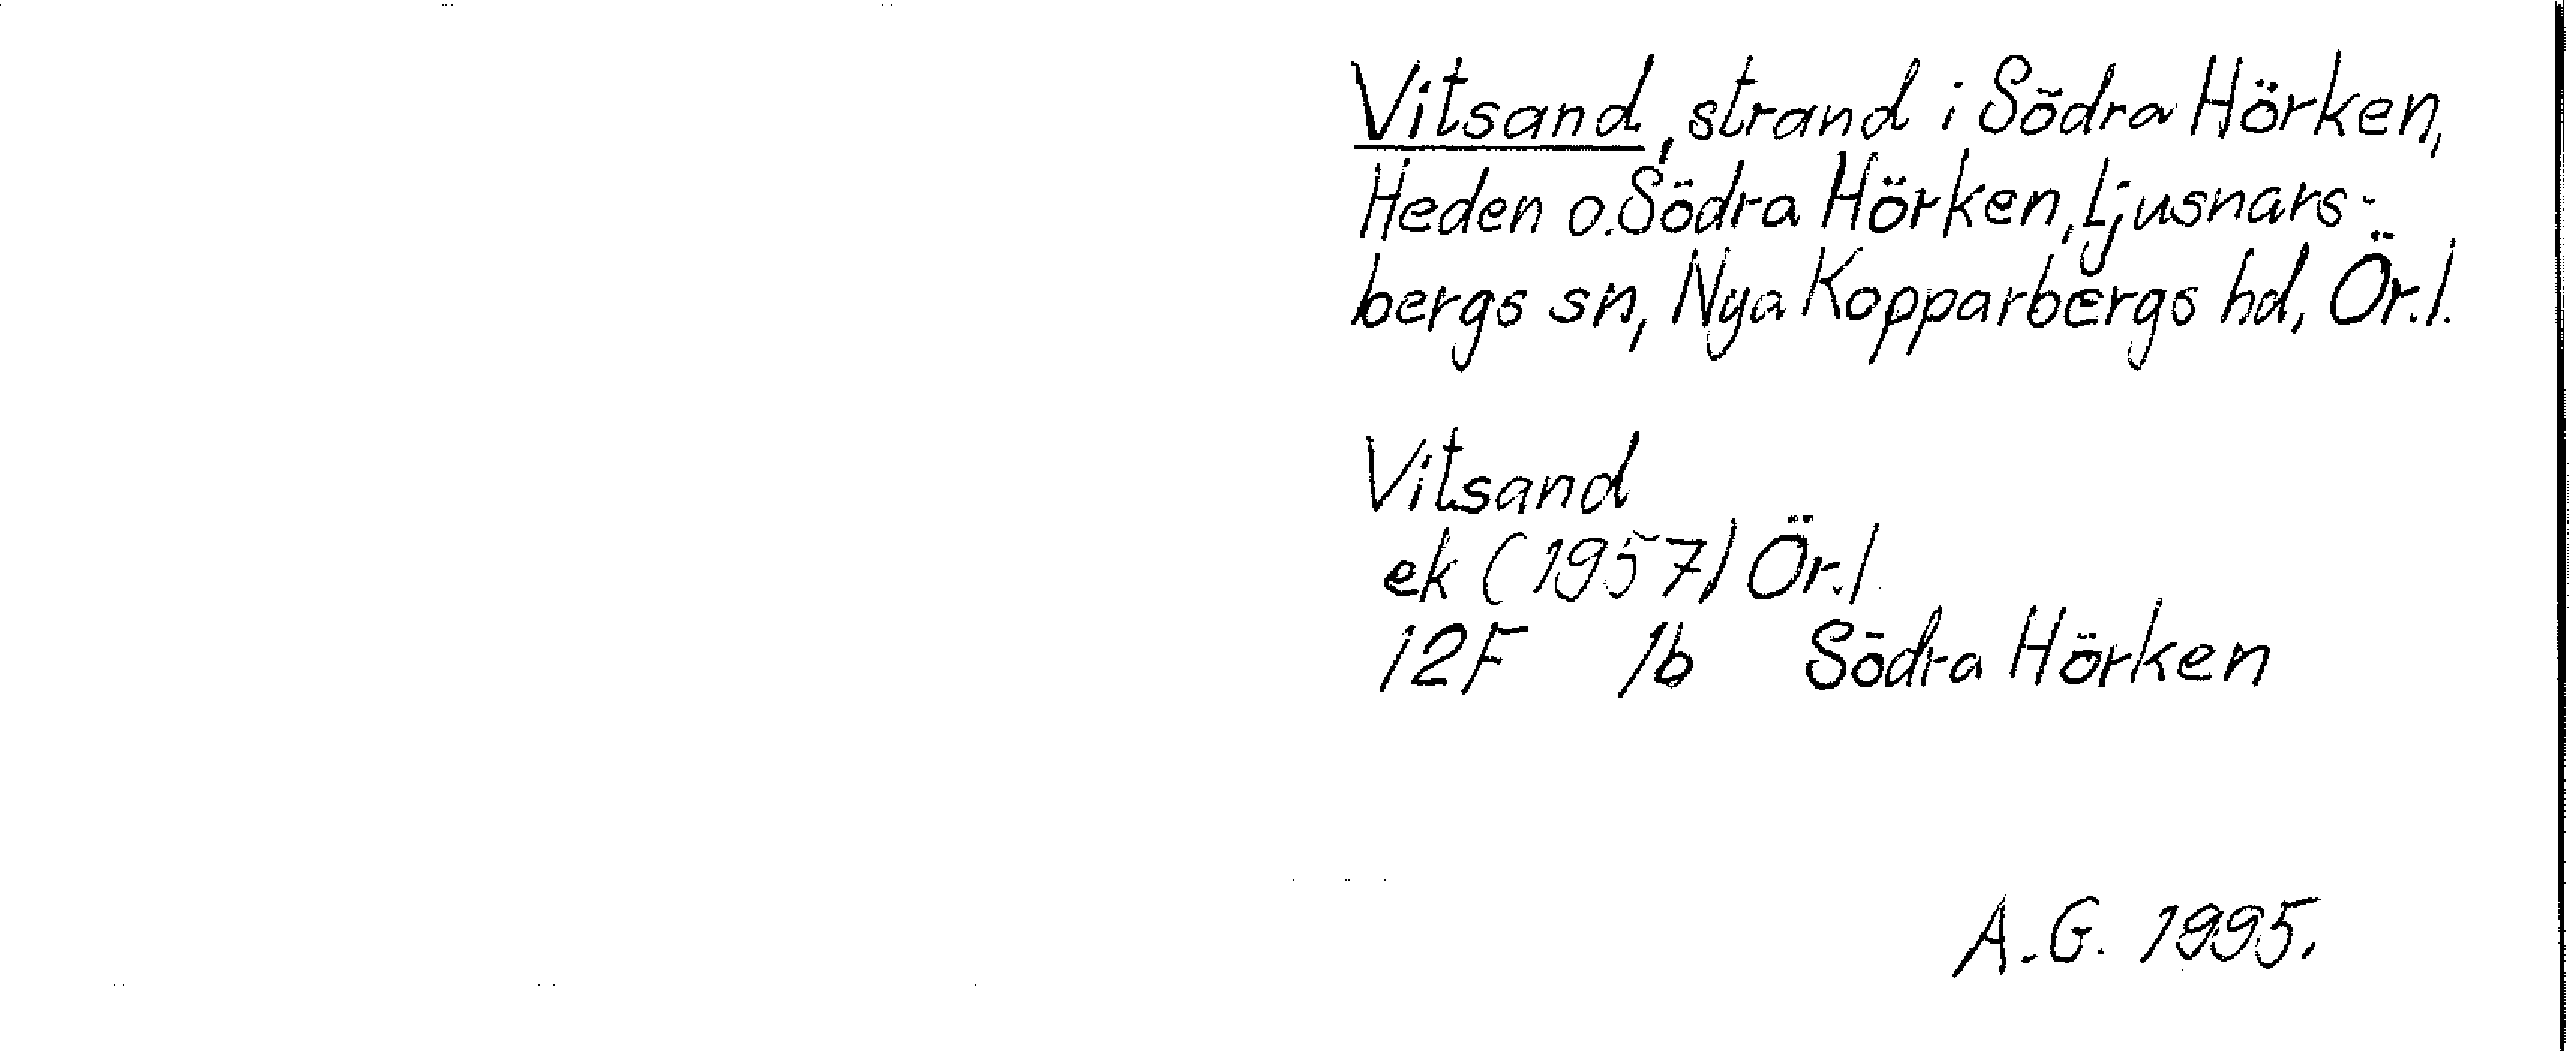 Vitsand, strand i Södra Hörken,
Heden o. Södra Hörken, Ljusnars-
bergs sn, Nya Kopparbergs hd, Ör.l.
Vitsand
ek (1957) Ör.l.
12F 1b Södra Hörken
A.G. 1995.